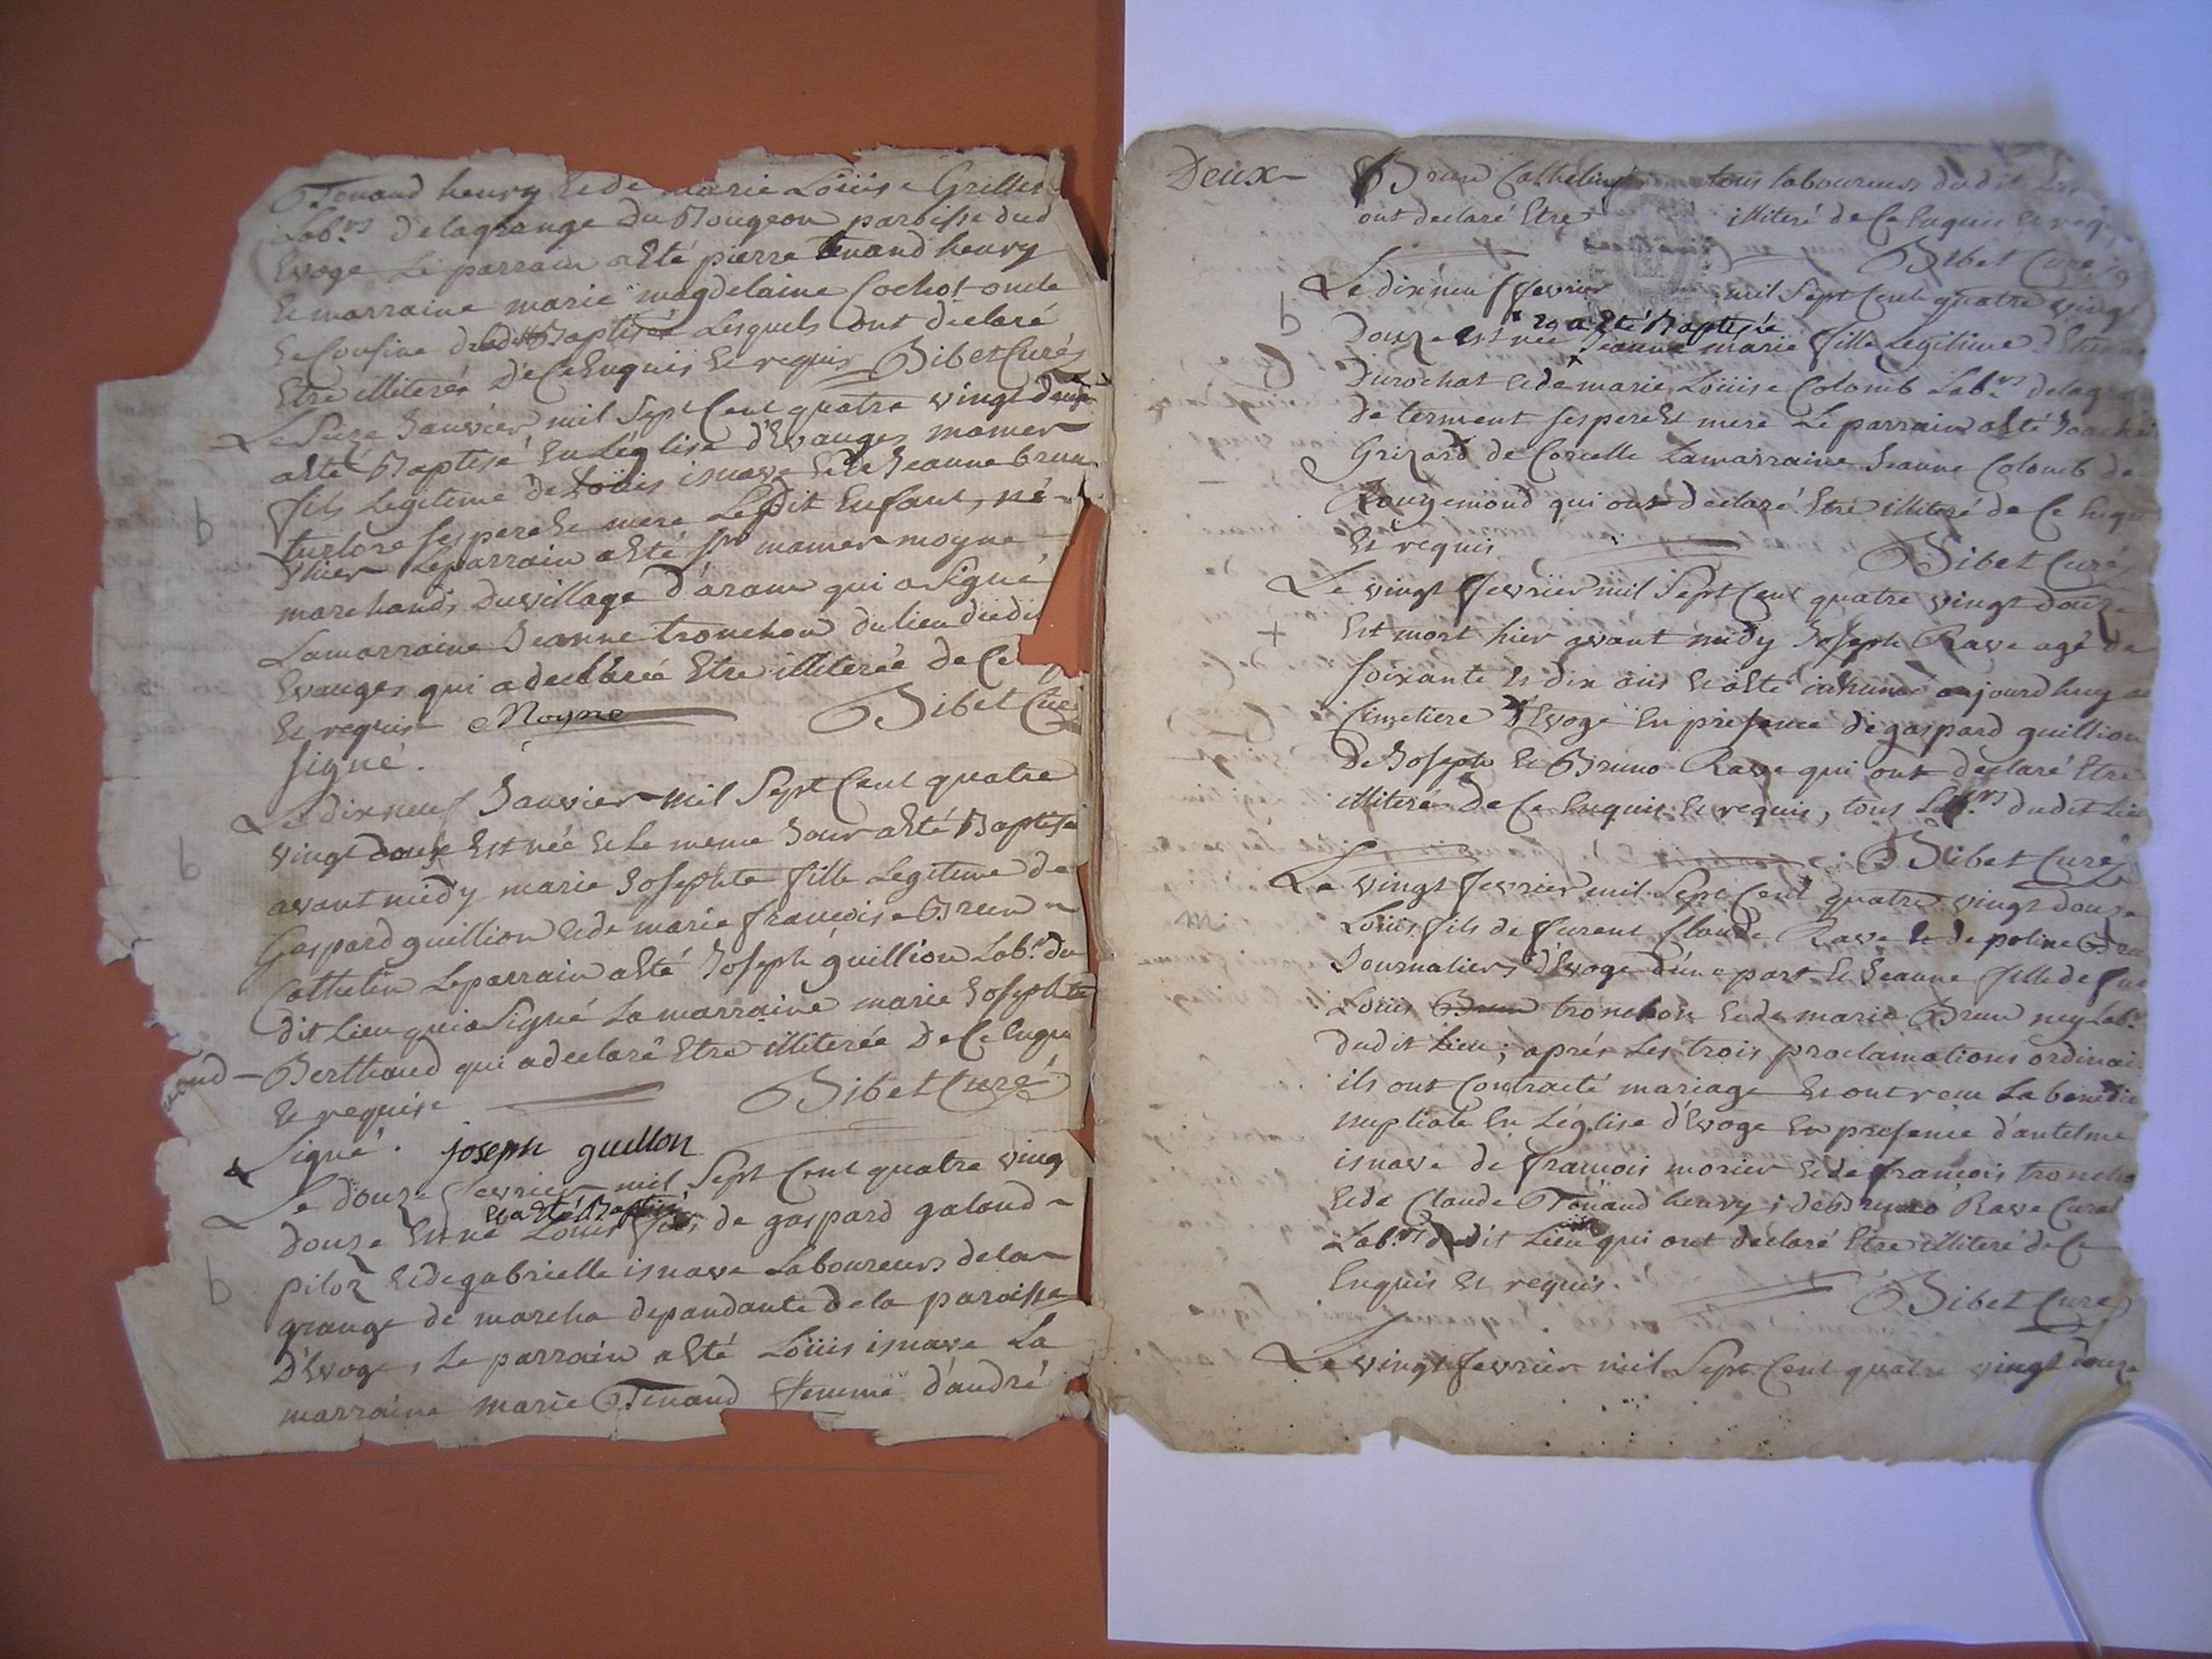 Tenand henry et de marie Loüise Grillet
Lab.rs delagrange du Rougeon paroisse dud
Evoge Le parrain a Eté pierre tenand henry
Et marraine marie magdelaine Cochet oncle
Et Cousine dudit Baptisé Lesquels ont déclaré
Etre illiterés De Ce Enquis Et requis Bibet Curé
Le Seize Janvier mil Sept Cent quatre vingt douze
a Eté Baptisé En L'église d'Evauges mamer
fils Legitime de Loüis isnave Et de Jeanne brun
turlore ses pere Et mere Ledit Enfant, né
hier Le parrain a Eté sr mamer moyne
marchand, du village d'aranc qui a Signé
La marraine Jeanne tronchon du lieu dudit
Evauges qui a declaré Etre illiterée de Ce
Et requise Moyne Bibet Curé
signé.
Le dix neuf Janvier mil Sept Cent quatre
vingt douze Est née Et Le meme Jour a Eté Baptisé
avant midy marie Josephte fille Legitime de
Gaspard guillion Et de marie françoise Brun
Cathelin Le parrain a Eté Joseph guillion Lab.r du
dit Lieu qui a Signé La marraine marie Josephte
Berthaud qui a declaré Etre illiterée De Ce Enqu
Et requise Bibet Curé
Signé. joseph guillon
Le douze fevrier mil Sept Cent quatre ving
Et a Eté Baptisé
douze Est né Loüis fils de gaspard galand
piloz Et de gabrielle isnave Laboureurs de la
grange de marcha dependante de la paroisse
D'Evoge, Le parrain a Eté Loüis isnave La
marraine marie Tenand femme d'andré
Deux
Brun Cathelin tous laboureurs dudit Lieu
ont declaré Etre illiteré de Ce Enquis Et req
Bibet Curé
Le dix neuf fevrier mil Sept Cent quatre vingt
b
Et a Eté Baptisée
Douze est née Jeanne marie fille Legitime d'Etienne
Durochat et de marie Loüise Colomb Lab.rs delagra
de terment ses pere Et mere Le parrain a Eté Joachi
Grizard de Corcelle La marraine Jeanne Colomb de
Rougemond qui ont declaré Etre illiteré de Ce Enqu
Et requis Bibet Curé
Le vingt fevrier mil Sept Cent quatre vingt douze
+
Est mort hier avant midy Joseph Rave agé de
soixante Et dix ans Et a Eté inhumé aujourdhuy au
Cimetiere d'Evoge En presence de gaspard guillion
De Joseph Et Bruno Rave qui ont declaré Etre
illiterés De Ce Enquis Et requis, tous Lab.rs dudit Lieu
Bibet Curé
Le vingt fevrier mil Sept Cent quatre vingt douze
Loüis fils de furent Claude Rave Et de poline Bru
Journaliers d'Evoge d'une part Et Jeanne fille de feu
Loüis Brun tronchon Et de marie Brun ney Lab.r
dudit Lieu; aprés Les trois proclamations ordinai
ils ont Contracté mariage Et ont recu La benedic
nuptiale En L'église d'Evoge En presence d'antelme
isnave de françois morier Et de françois troncho
Et de Claude Tenand henry; de Bruno Rave Curat
Lab.rs dudit Lieu qui ont declaré Etre illiteré de Ce
Enquis Et requis. Bibet Curé
Le vingt fevrier mil Sept Cent quatre vingt douze